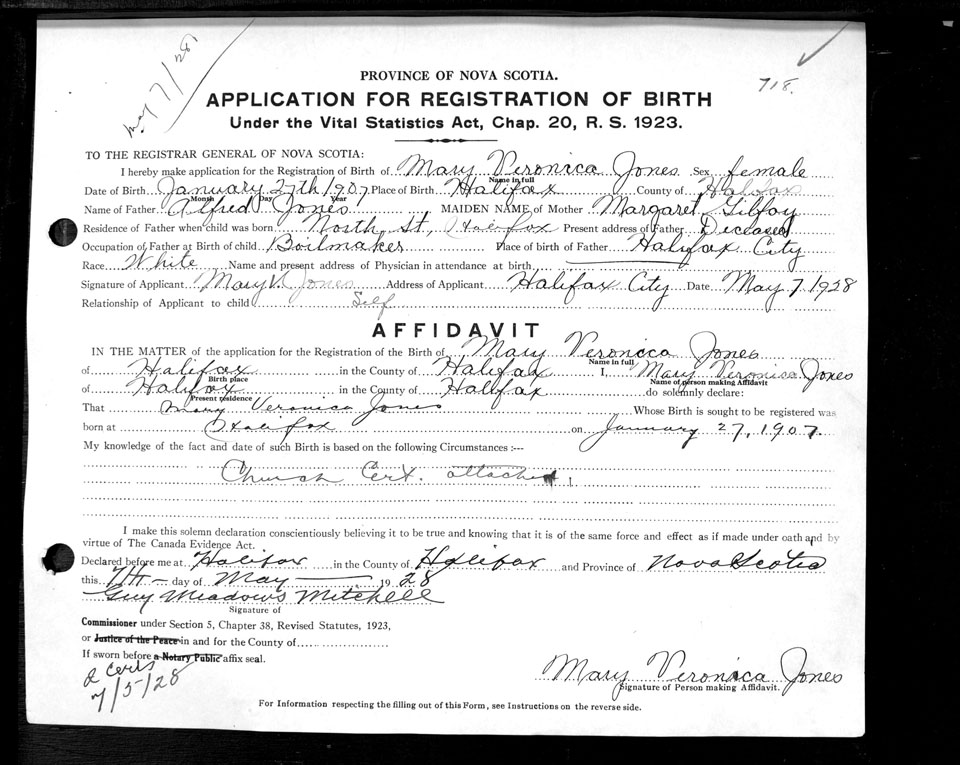 May 7/28
718.
PROVINCE OF NOVA SCOTIA.
APPLICATION FOR REGISTRATION OF BIRTH
Under the Vital Statistics Act, Chap. 20, R. S. 1923.
TO THE REGISTRAR GENERAL OF NOVA SCOTIA:
I hereby make application for the Registration of Birth of Mary Veronica Jones Sex female
Name in full
Date of Birth January 27th 1907 Place of Birth Halifax County of Halifax
Month Day Year
Name of Father Alfred Jones MAIDEN NAME of Mother Margaret Gilfoy
Residence of Father when child was born North St, Halifax Present address of Father Deceased
Occupation of Father at Birth of child Boilmaker Place of birth of Father Halifax City
Race White Name and present address of Physician in attendance at birth
Signature of Applicant Mary V. Jones Address of Applicant Halifax City Date May 7/1928
Relationship of Applicant to child Self
AFFIDAVIT
IN THE MATTER of the application for the Registration of the Birth of Mary Veronica Jones
Name in full
of Halifax in the County of Halifax I, Mary Veronica Jones
Birth place Name of person making Affidavit
of Halifax in the County of Halifax do solemnly declare:
Present residence
That Mary Veronica Jones Whose Birth is sought to be registered was
born at Halifax on January 27, 1907.
My knowledge of the fact and date of such Birth is based on the following Circumstances :---
Church Cert. attached
I make this solemn declaration conscientiously believing it to be true and knowing that it is of the same force and effect as if made under oath and by
virtue of The Canada Evidence Act.
Declared before me at Halifax in the County of Halifax and Province of Nova Scotia
this 7th day of May 1928
Guy Meadows Mitchell
Signature of
Commissioner under Section 5, Chapter 38, Revised Statutes, 1923,
or Justice of the Peace in and for the County of
If sworn before a Notary Public affix seal.
2 Certs
7/5/28
Mary Veronica Jones
Signature of Person making Affidavit.
For Information respecting the filling out of this Form, see Instructions on the reverse side.